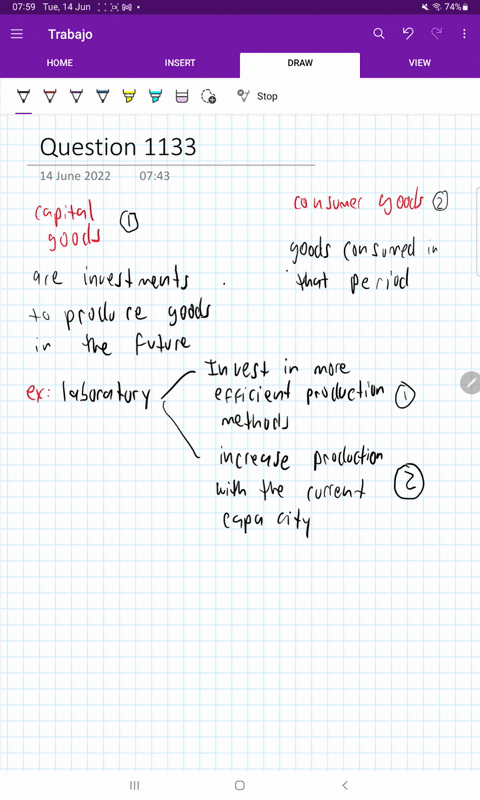 07:59 Tue, 14 Jun
74%
Trabajo
HOME
INSERT
DRAW
VIEW
Stop
Question 1133
14 June 2022 07:43
capital goods ①
consumer goods ②
are investments
to produce goods
in the future
goods consumed in
that period
ex: laboratory
Invest in more
efficient production ①
methods
increase production
with the current ②
capacity